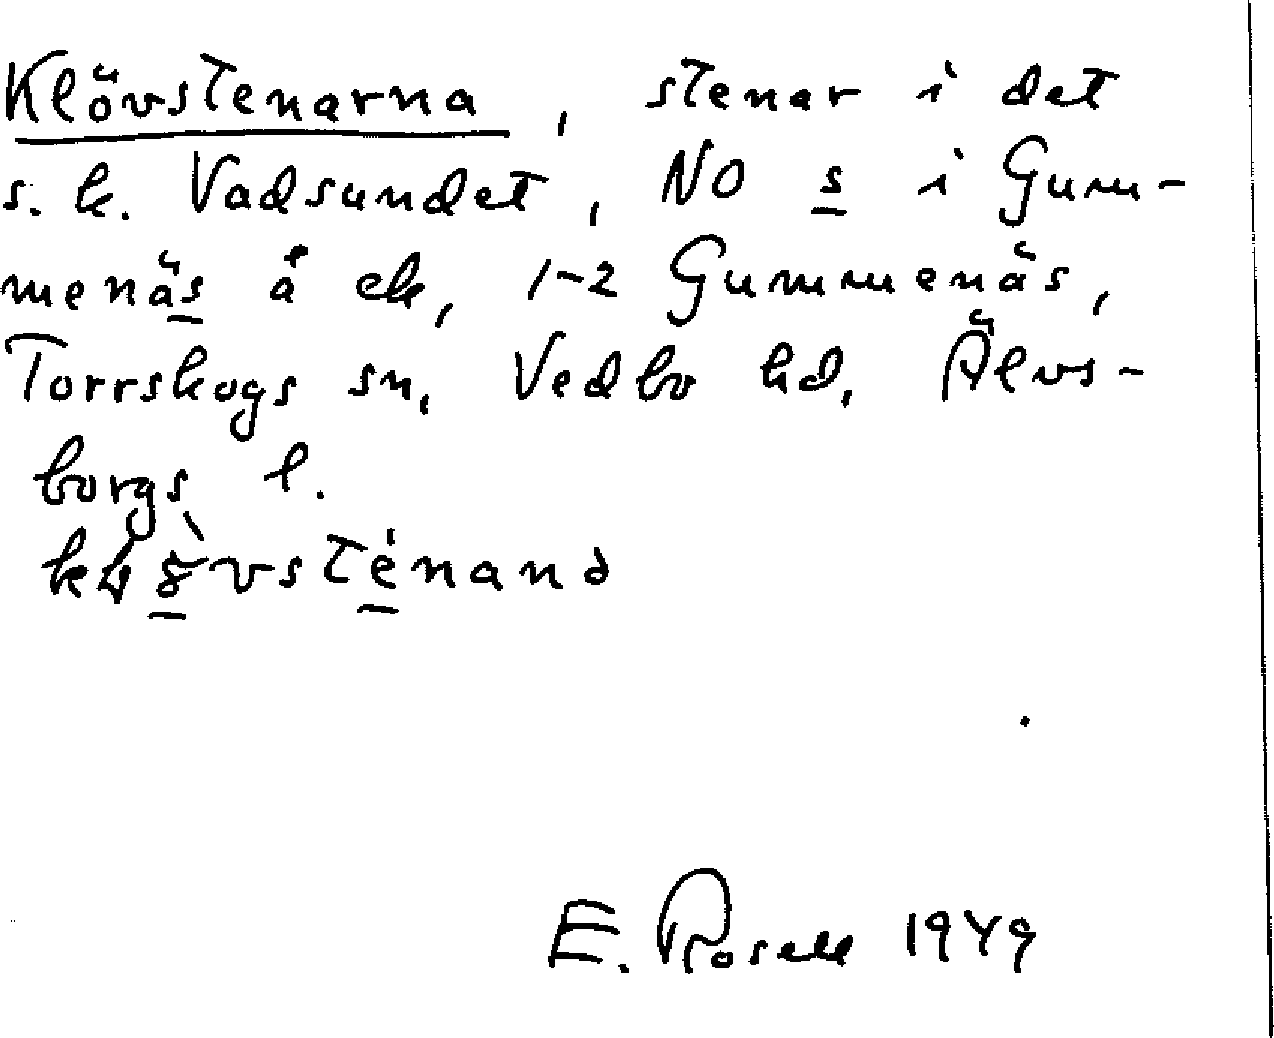 Klövstenarna, stenar i det
s.k. Vadsundet, NO s i Gum-
menäs å ek, 1-2 Gummenäs,
Torrskogs sn, Vedbo hd, Älvs-
borgs l.
E. Rosell 1949